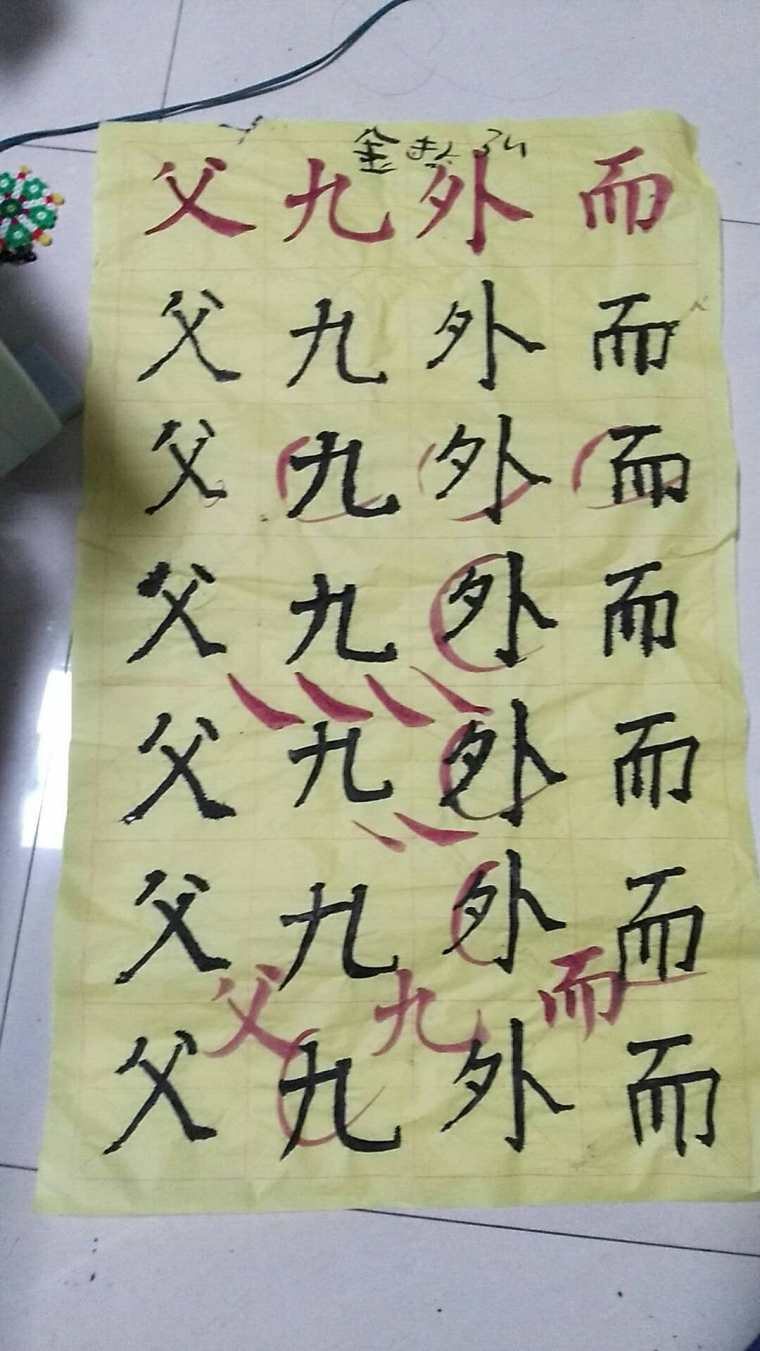 父九外而
父九外而
父九外而
父九外而
父九外而
父九外而
父九而
父九外而